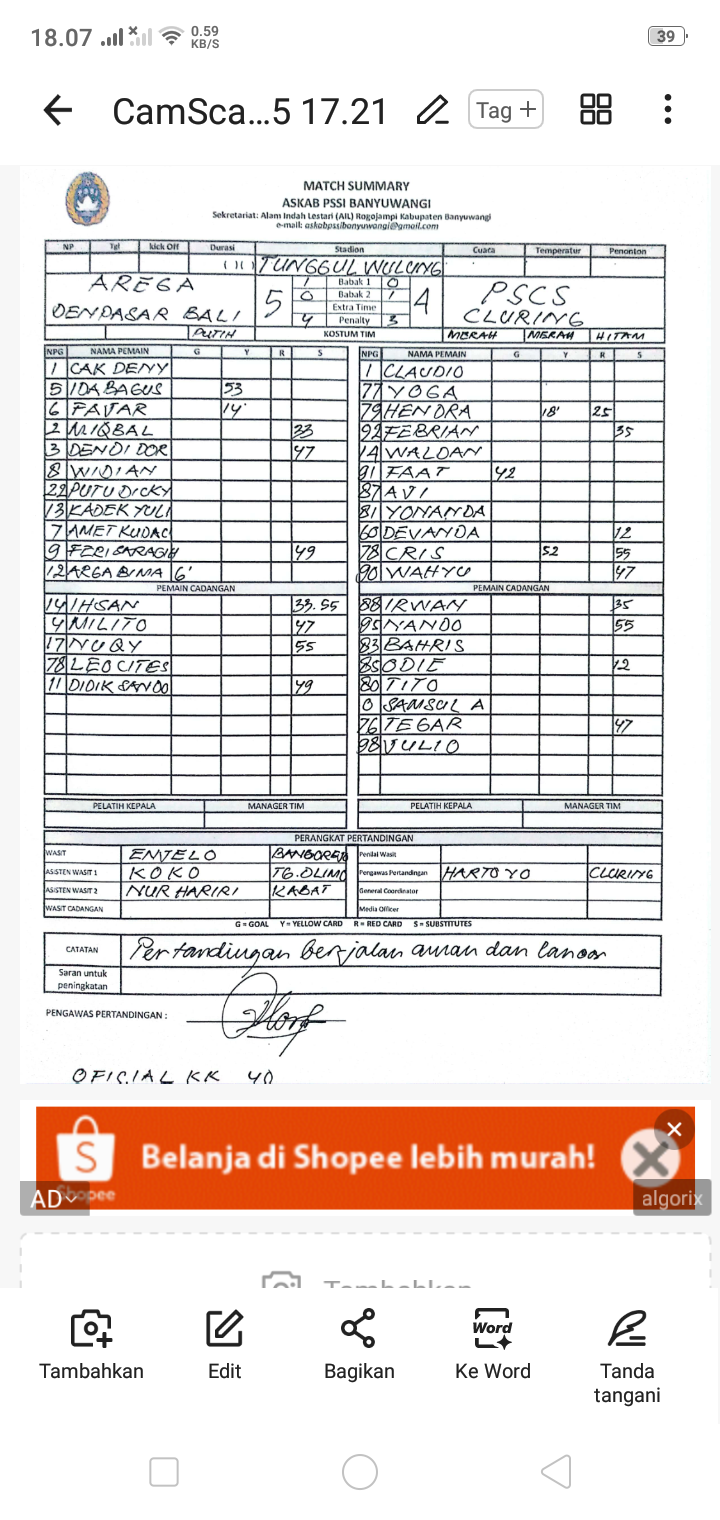 18.07 0.59 KB/S 39
CamSca...5 17.21 Tag +
MATCH SUMMARY
ASKAB PSSI BANYUWANGI
Sekretariat: Alam Indah Lestari (AIL) Rogojampi Kabupaten Banyuwangi
e-mail: askabpssibanyuwangi@gmail.com
NP Tgl kick Off Durasi Stadion Cuaca Temperatur Penonton
( )( ) TUNGGUL WULUNG
AREGA DENPASAR BALI 5 4 PSCS CLURING
1 Babak 1 0
0 Babak 2 1
Extra Time
4 Penalty 3
PUTIH KOSTUM TIM MERAH MERAH HITAM
NPG NAMA PEMAIN G Y R S NPG NAMA PEMAIN G Y R S
1 CAK DENY 1 CLAUDIO
5 IDA BAGUS 53 77 YOGA
6 FAJAR 14' 79 HENDRA 18' 25
2 MIQBAL 33 92 FEBRIAN 35
3 DENDI DOR 47 14 WALDAN
8 WIDIAN 91 FAAT 42
22 PUTU DICKY 87 AVI
13 KADEK YULI 81 YONANDA
7 AMET KUDACI 60 DEVANDA 12
9 FERI SARAGIH 49 78 CRIS 52 55
12 ARGA BIMA 6' 90 WAHYU 47
PEMAIN CADANGAN PEMAIN CADANGAN
14 IHSAN 33.55 88 IRWAN 35
4 MILITO 47 95 NANDO 55
17 NUQY 55 83 BAHRIS
78 LEO CITES 85 ODIE 12
11 DIDIK SANDO 49 80 TITO
0 SAMSUL A
76 TEGAR 47
98 YULIO
PELATIH KEPALA MANAGER TIM PELATIH KEPALA MANAGER TIM
PERANGKAT PERTANDINGAN
WASIT ENJELO BANGOREJO Penilai Wasit
ASISTEN WASIT 1 KOKO TG.OLIMO Pengawas Pertandingan HARTOYO CLURING
ASISTEN WASIT 2 NUR HARIRI KABAT General Coordinator
WASIT CADANGAN Media Officer
G = GOAL Y = YELLOW CARD R = RED CARD S = SUBSTITUTES
CATATAN Pertandingan berjalan aman dan lancar
Saran untuk peningkatan
PENGAWAS PERTANDINGAN :
OFICIAL KK 40
S Belanja di Shopee lebih murah!
Shopee
AD algorix
Tambahkan
Tambahkan Edit Bagikan Ke Word Tanda tangani
Word